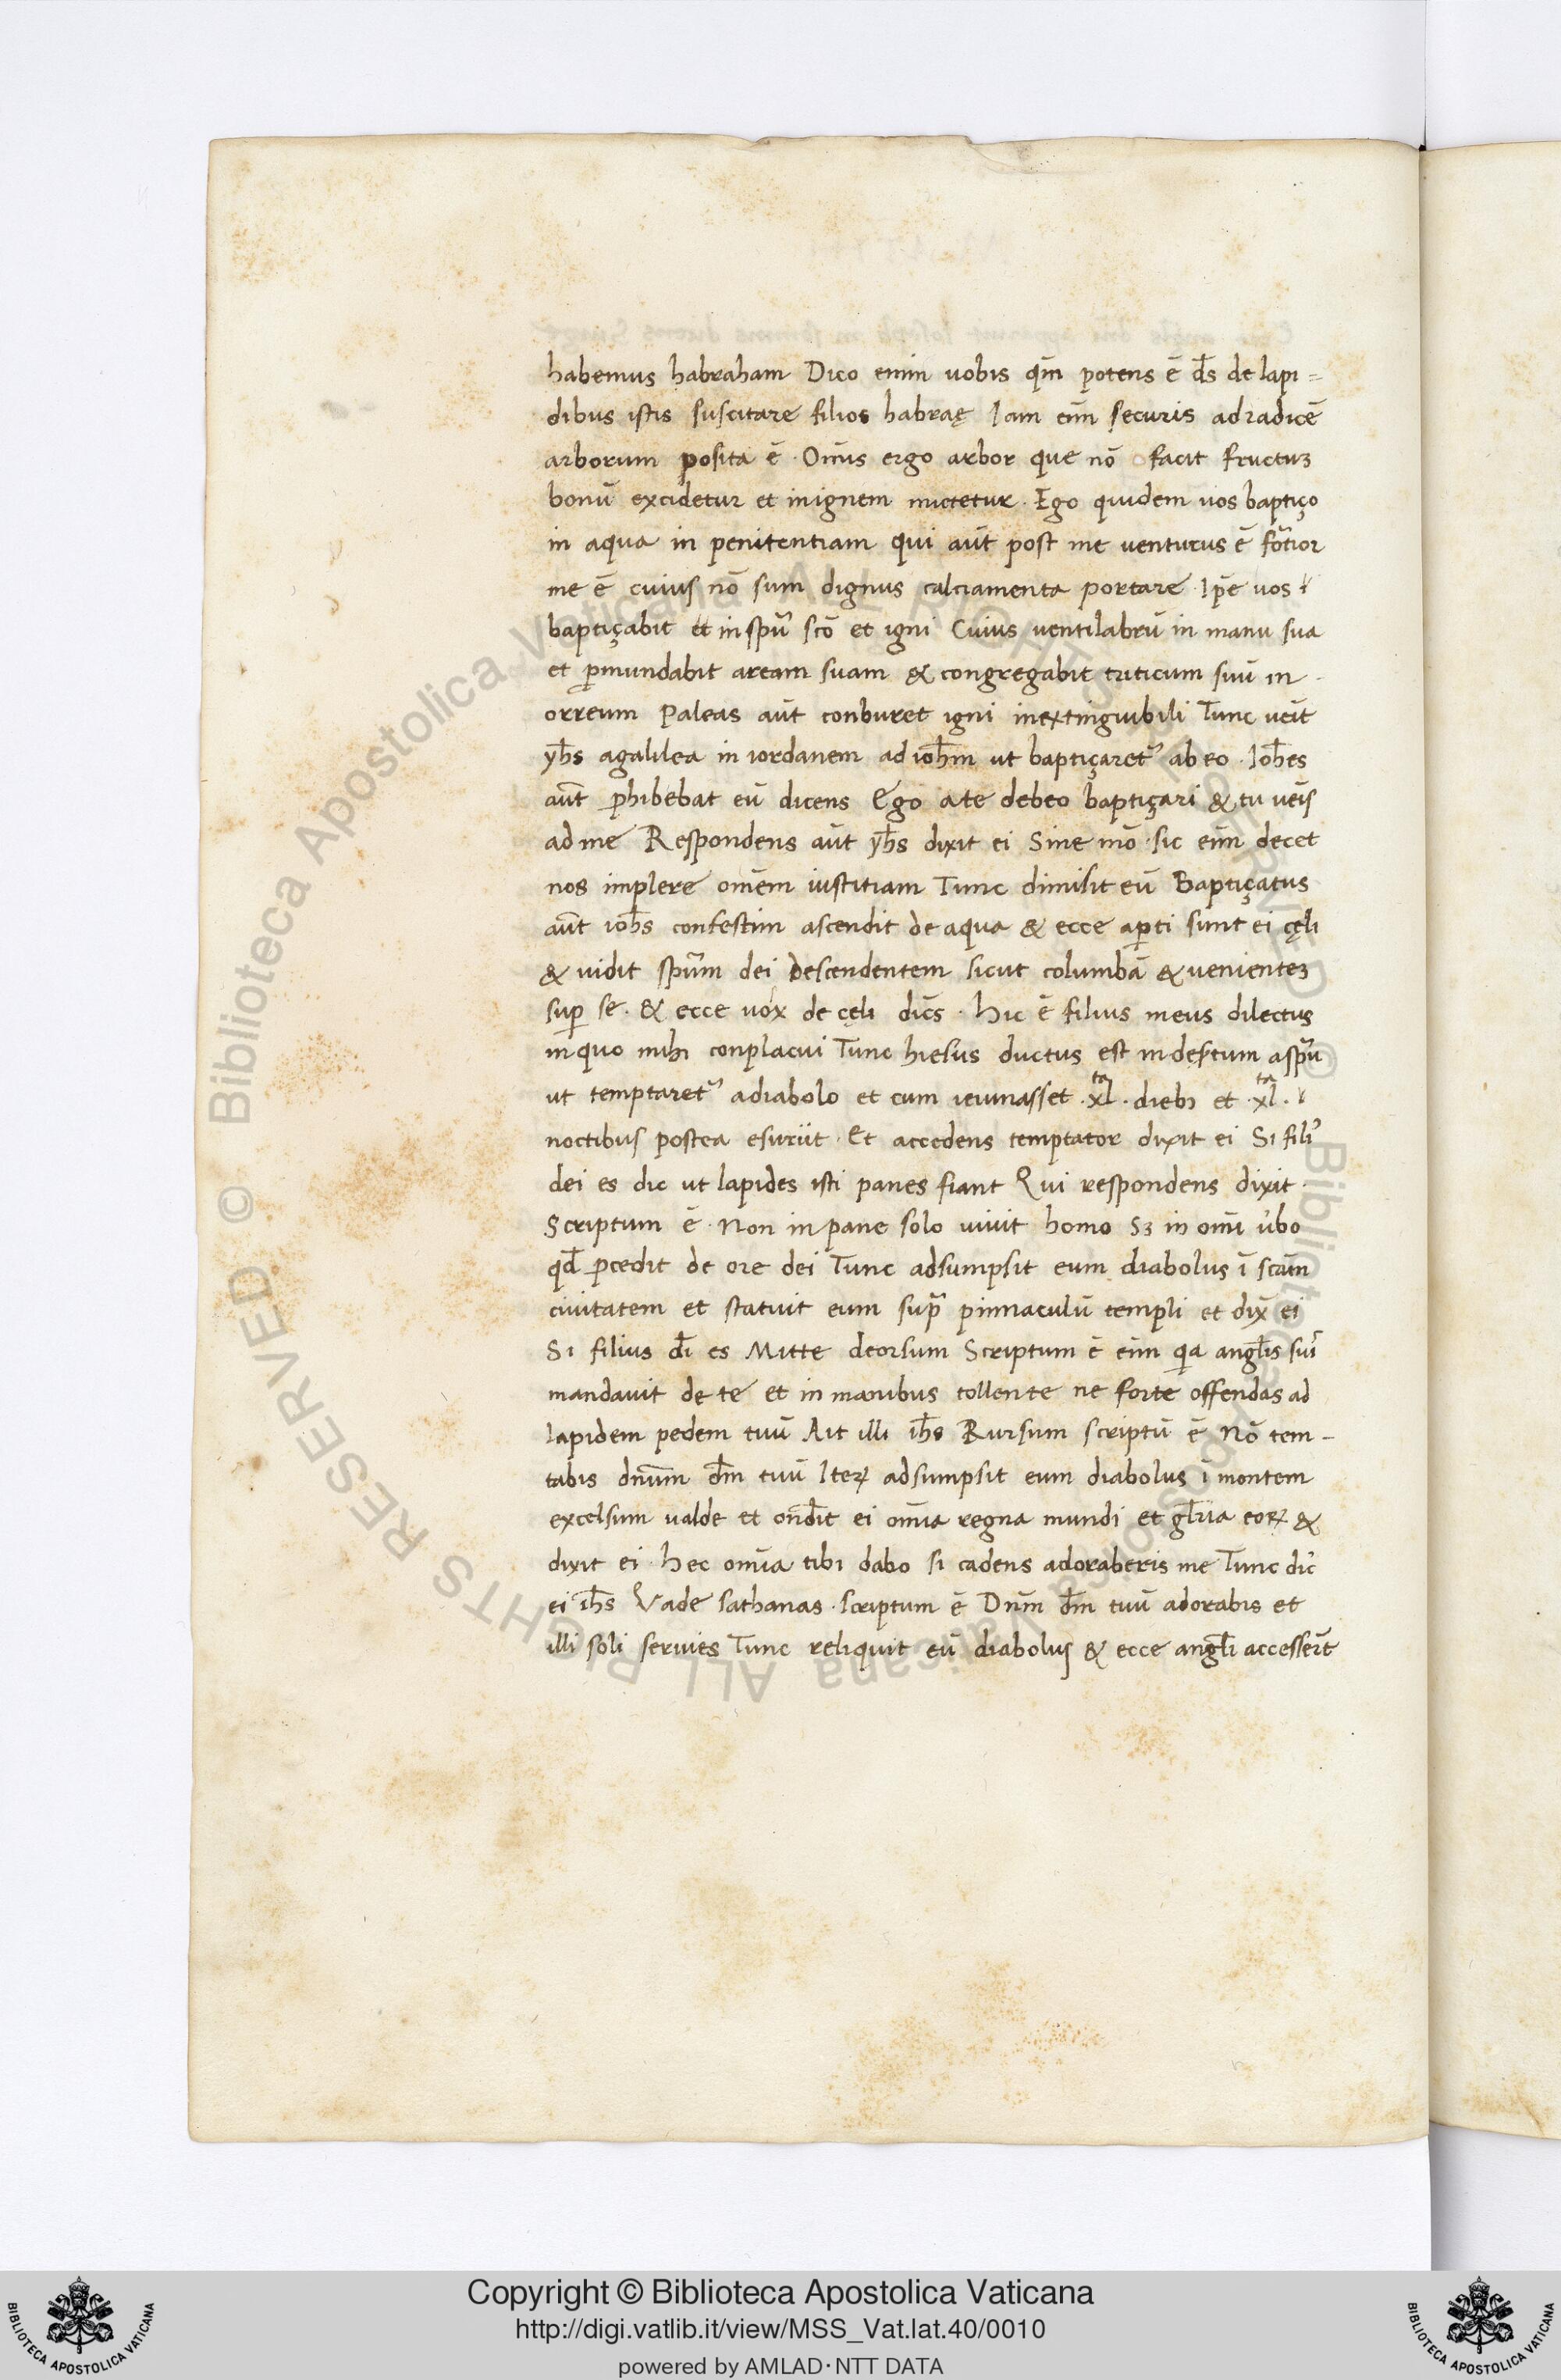 habemus habraham Dico enim uobis qm̄ potens ē d̄s de lapi=
dibus istis suscitare filios habraę Iam eīm securis ad radicē
arborum posita ē · Om̄s ergo arbor que nō facit fructuꝫ
bonū excidetur et in ignem mictetur · Ego quidem uos baptiço
in aqua in penitentiam qui aūt post me uenturus ē fōtior
me ē cuius nō sum dignus calciamenta portare · Ip̄e uos
baptiçabit et in spū scō et igni Cuius uentilabrū in manu sua
et ꝑmundabit aream suam & congregabit triticum suū in
orreum Paleas aūt conburet igni inextinguibili Tunc ueīt
yh̄s a galilea in iordanem ad ioh̄m ut baptiçaretᷣ ab eo · Ioh̄es
aūt ꝓhibebat eū dicens Ego a te debeo baptiçari & tu ueīs
ad me Respondens aūt yh̄s dixit ei Sine mō · sic eīm decet
nos implere om̄em iustitiam Tunc dimisit eū Baptiçatus
aūt ioh̄s confestim ascendit de aqua & ecce aꝑti sunt ei cęli
& uidit spūm dei descendentem sicut columbā & uenienteꝫ
suꝑ se · & ecce uox de cęli dic̄s · Hic ē filius meus dilectus
in quo mihi conplacui Tunc hiesus ductus est in deẜtum a spū
ut temptaretᷣ a diabolo et cum ieiunasset · xlᵗᵃ · diebꝫ et · xlᵗᵃ ·
noctibus postea esuriit · Et accedens temptator dixit ei Si fili᾽
dei es dic ut lapides isti panes fiant Qui respondens dixit ·
Scriptum ē · Non in pane solo uiuit homo Sꝫ in om̄i u̓bo
qd̄ ꝓcedit de ore dei Tunc adsumpsit eum diabolus ī scām
ciuitatem et statuit eum sup̄ pinnaculū templi et dix̄ ei
Si filius dī es Mitte deorsum Scriptum ē eīm qa angl̄is suī
mandauit de te et in manibus tollent te ne forte offendas ad
lapidem pedem tuū Ait illi ih̄s Rursum scriptū ē Nō tem-
tabis dn̄um dm̄ tuū Iteꝝ adsumpsit eum diabolus ī montem
excelsum ualde et on̄dit ei om̄ia regna mundi et gl̄ria eoꝝ &
dixit ei · Hec om̄ia tibi dabo si cadens adoraberis me Tunc dic̄
ei ih̄s Vade sathanas · scriptum ē Dn̄m dm̄ tuū adorabis et
illi soli seruies Tunc reliquit eū diabolus & ecce angl̄i accesseīt
© Biblioteca Apostolica Vaticana ALL RIGHTS RESERVED © Biblioteca Apostolica Vaticana ALL RIGHTS RESERVED
Copyright © Biblioteca Apostolica Vaticana
http://digi.vatlib.it/view/MSS_Vat.lat.40/0010
powered by AMLAD·NTT DATA
BIBLIOTECA APOSTOLICA VATICANA
BIBLIOTECA APOSTOLICA VATICANA